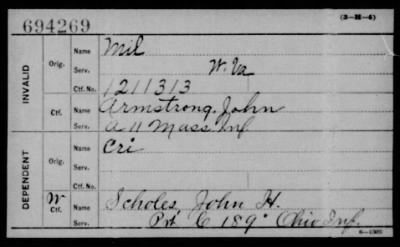 694269 (3-H-4)
INVALID Orig. Name Mil
Serv. W. Va
Ctf. No. 1211313
Ctf. Name Armstrong, John
Serv. A 11 Mass. Inf
DEPENDENT Orig. Name Cri
Serv.
Ctf. No.
W Ctf. Name Scholes, John H.
Serv. Pvt C 189" Ohio Inf